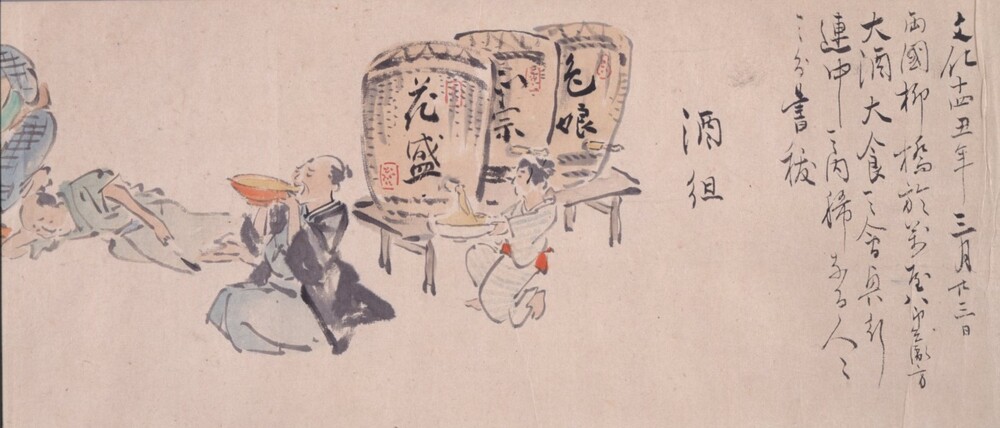 文化十四丑年三月廿三日
両國柳橋於萬屋八郎兵衛方
大酒大食之會興行
連中之内稀なる人々
之分書抜
酒組
色娘
正宗
花盛